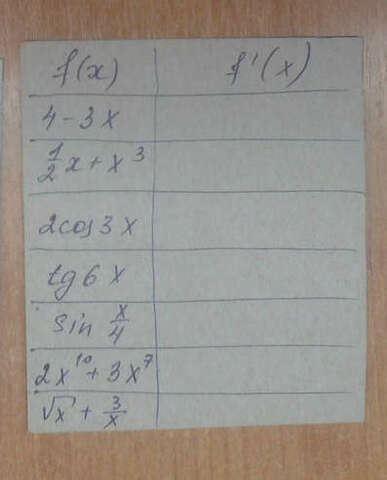 f(x) f'(x)
4 - 3x
1/2 x + x³
2cos3x
tg6x
sin x/4
2x¹⁰ + 3x⁷
√x + 3/x